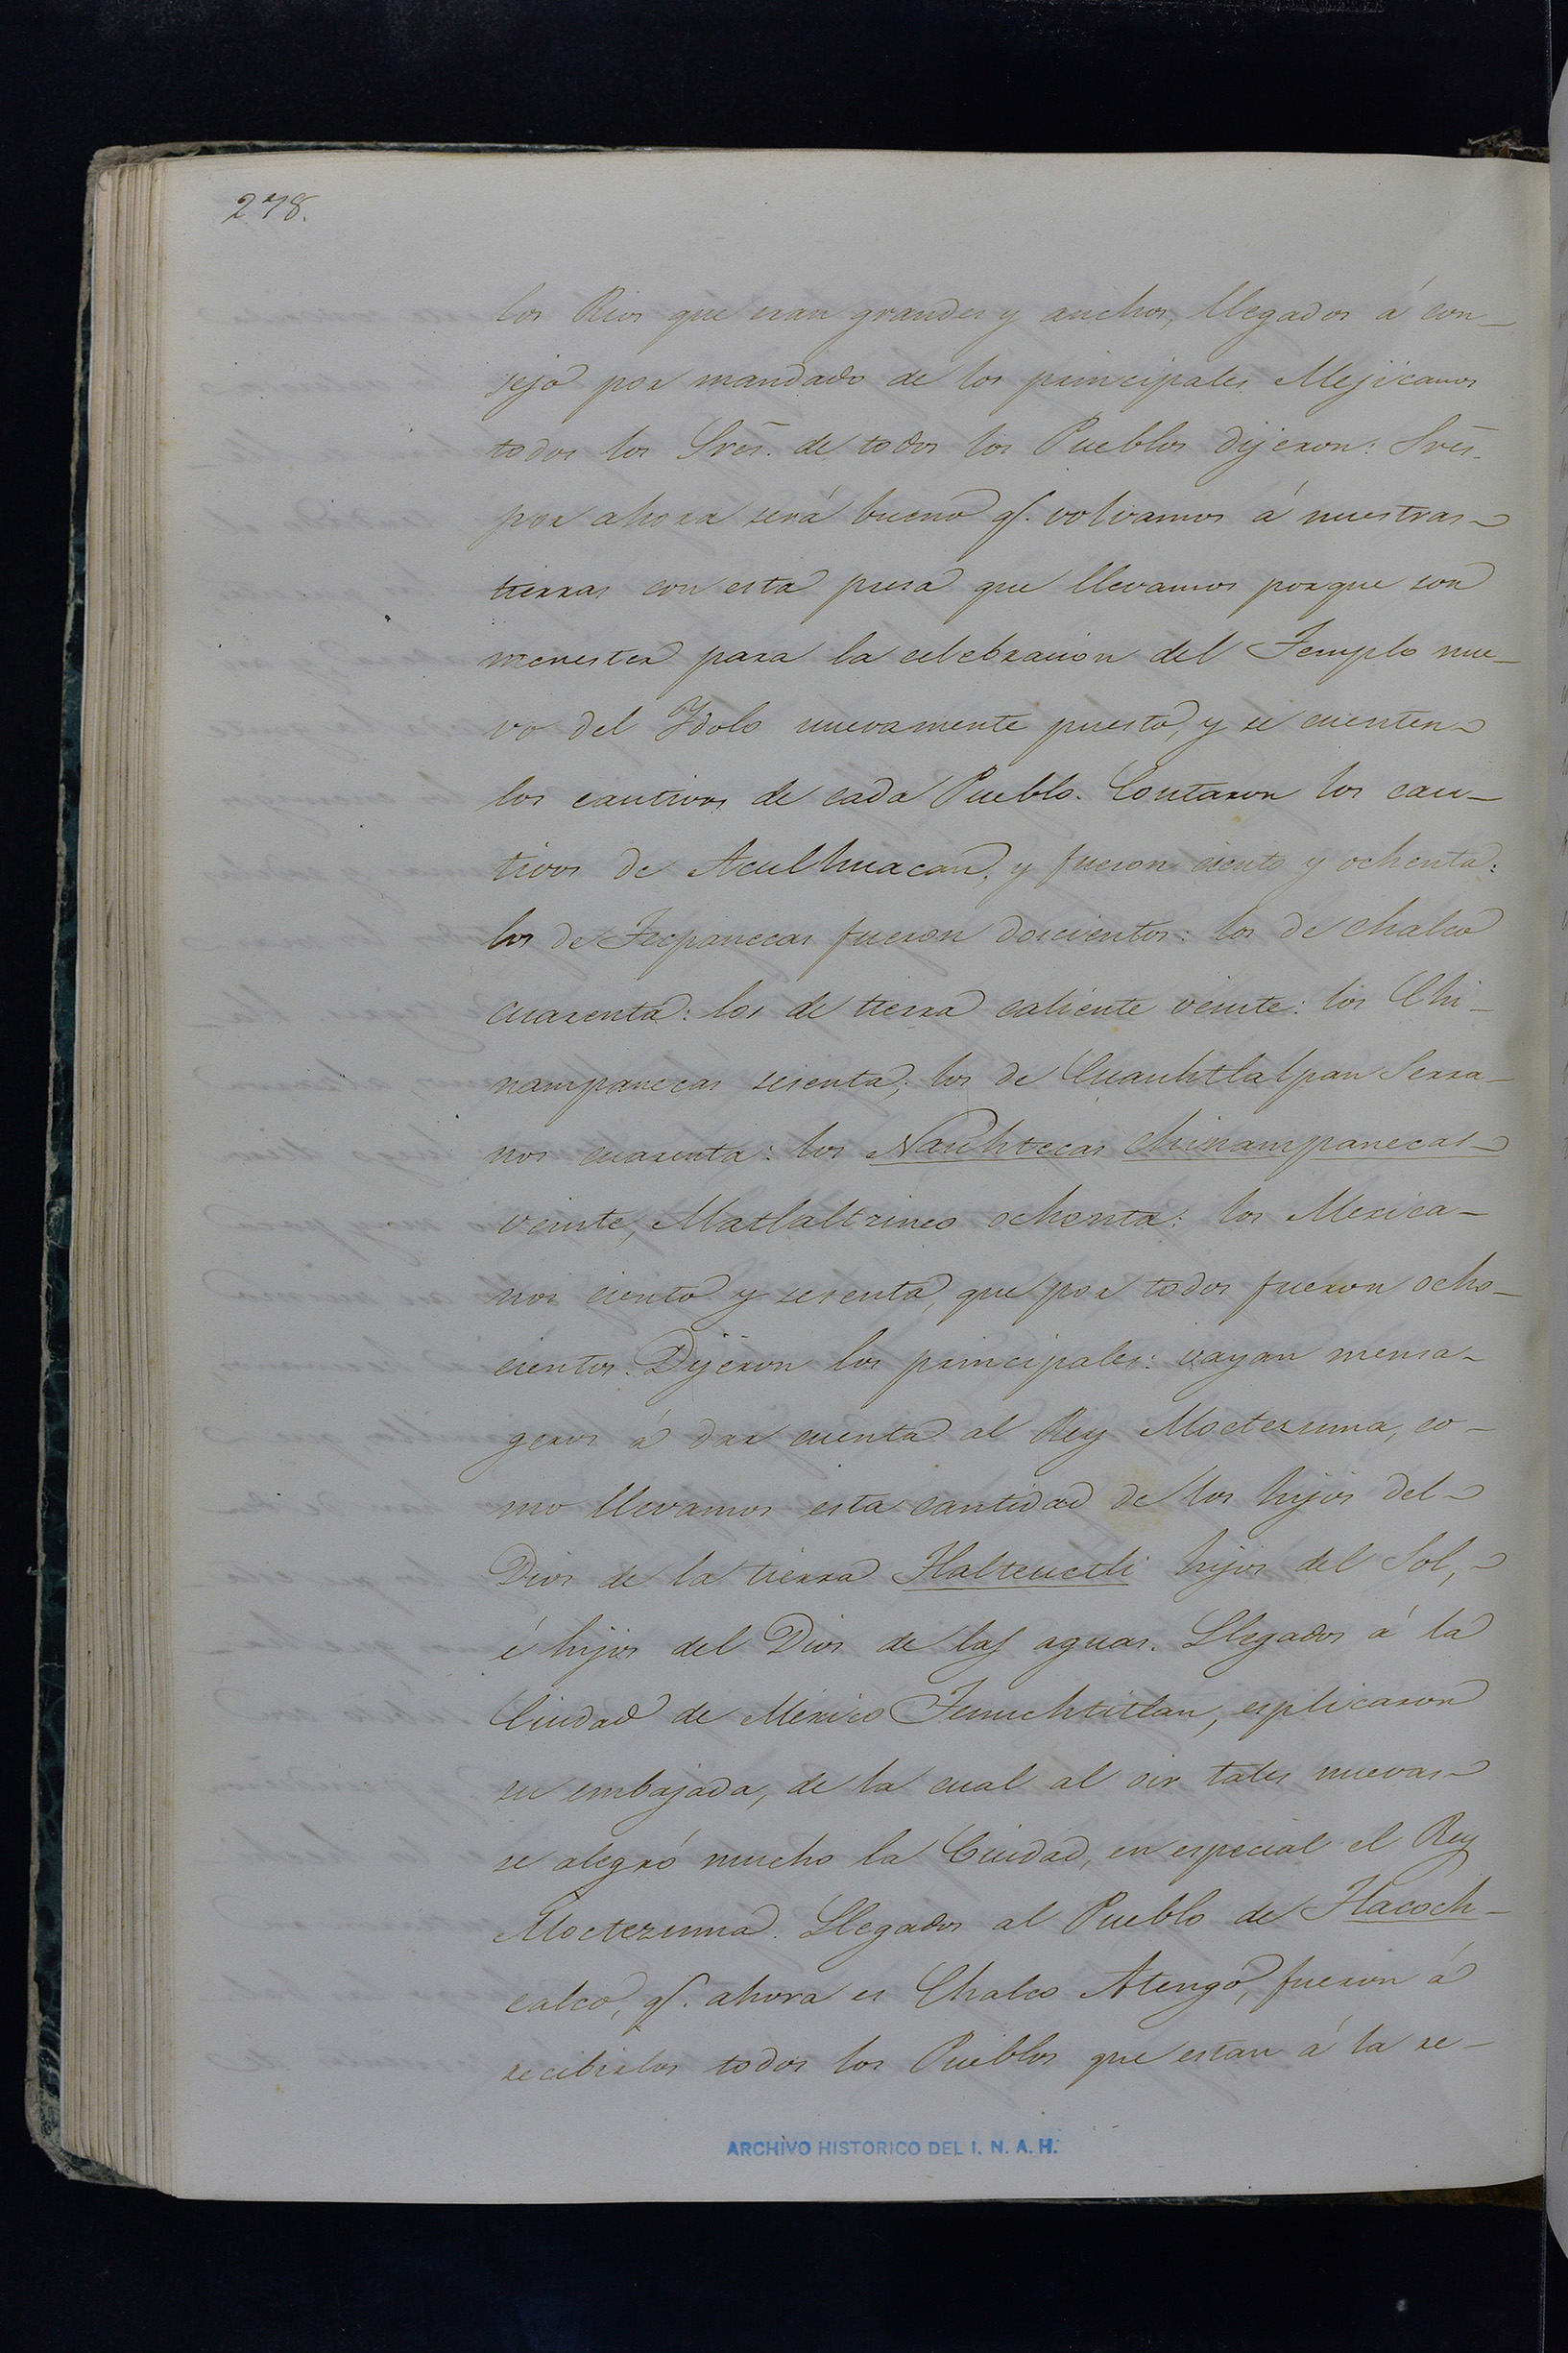 278.
los Rios que eran grandes y anchos, llegados á con-
sejo por mandado de los principales Mejicanos
todos los Sres. de todos los Pueblos dijeron: Sres.
por ahora será bueno q. volvamos á nuestras
tierras con esta presa que llevamos porque son
menester para la celebracion del Templo nue-
vo del Idolo nuevamente puesto, y se cuenten
los cautivos de cada Pueblo. Contaron los cau-
tivos de Aculhuacan, y fueron ciento y ochenta:
los de Tecpanecas fueron doscientos: los de Chalco
cuarenta: los de tierra caliente veinte: los Chi-
nampanecas sesenta; los de Cuauhtlalpan Serra-
nos cuarenta: los Nauhtecas Chinampanecas
veinte, Matlaltzinco ochenta: los Mexica-
nos ciento y sesenta, que por todos fueron ocho-
cientos. Dijeron los principales: vayan mensa-
geros á dar cuenta al Rey Moctezuma, co-
mo llevamos esta cantidad de los hijos del
Dios de la tierra Tlalteuctli hijos del Sol,
é hijos del Dios de las aguas. Llegados á la
Ciudad de Mexico Tenuchtitlan, esplicaron
su embajada, de la cual al oir tales nuevas
se alegró mucho la Ciudad, en especial el Rey
Moctezuma. Llegados al Pueblo de Tlacoch-
calco, q. ahora es Chalco Atengo, fueron á
recibirlos todos los Pueblos que estan á la re-
ARCHIVO HISTORICO DEL I. N. A. H.